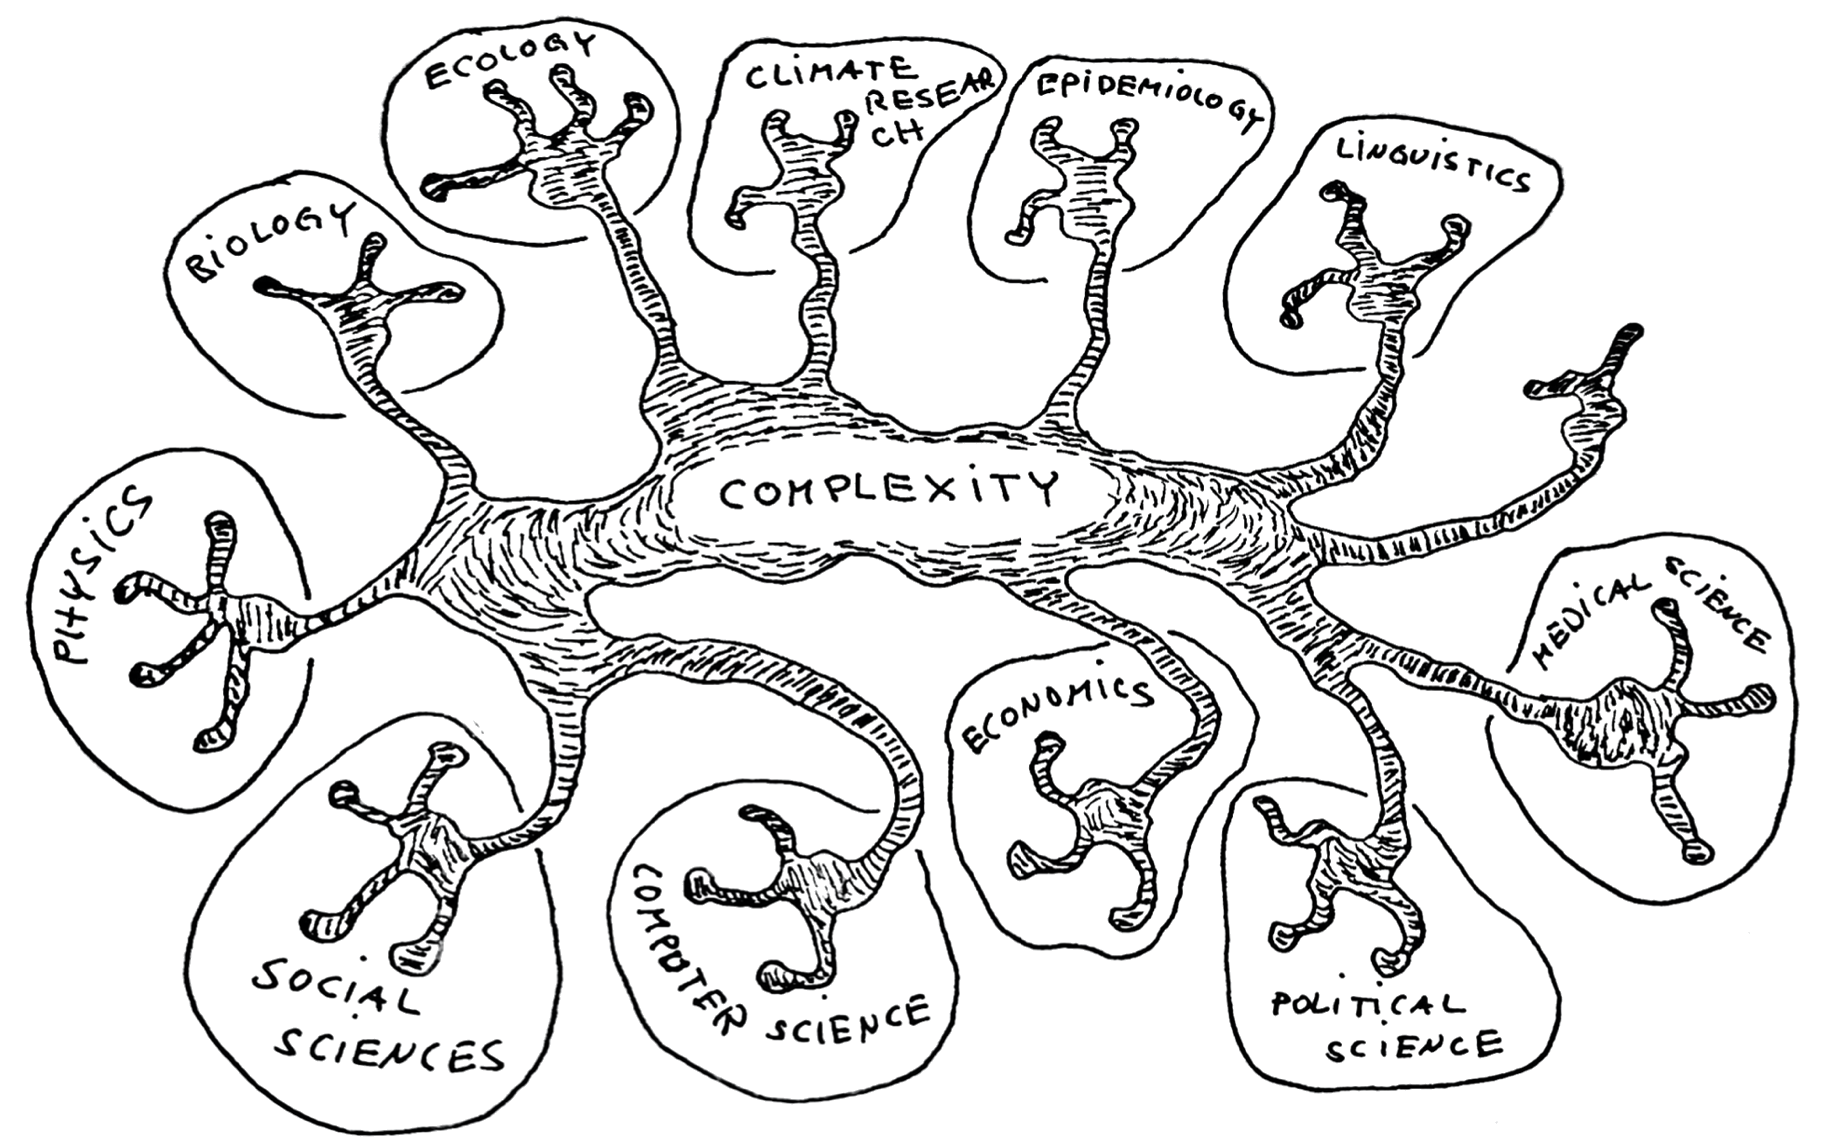 ECOLOGY
CLiMATE
RESEAR
CH
EPiDEMiOLOGY
LiNGUiSTiCS
BiOLOGY
COMPLEXiTY
PHYSiCS
MEDiCAL SCiENCE
ECONOMiCS
SOCiAL
SCiENCES
COMPUTER SCiENCE
POLiTiCAL
SCiENCE